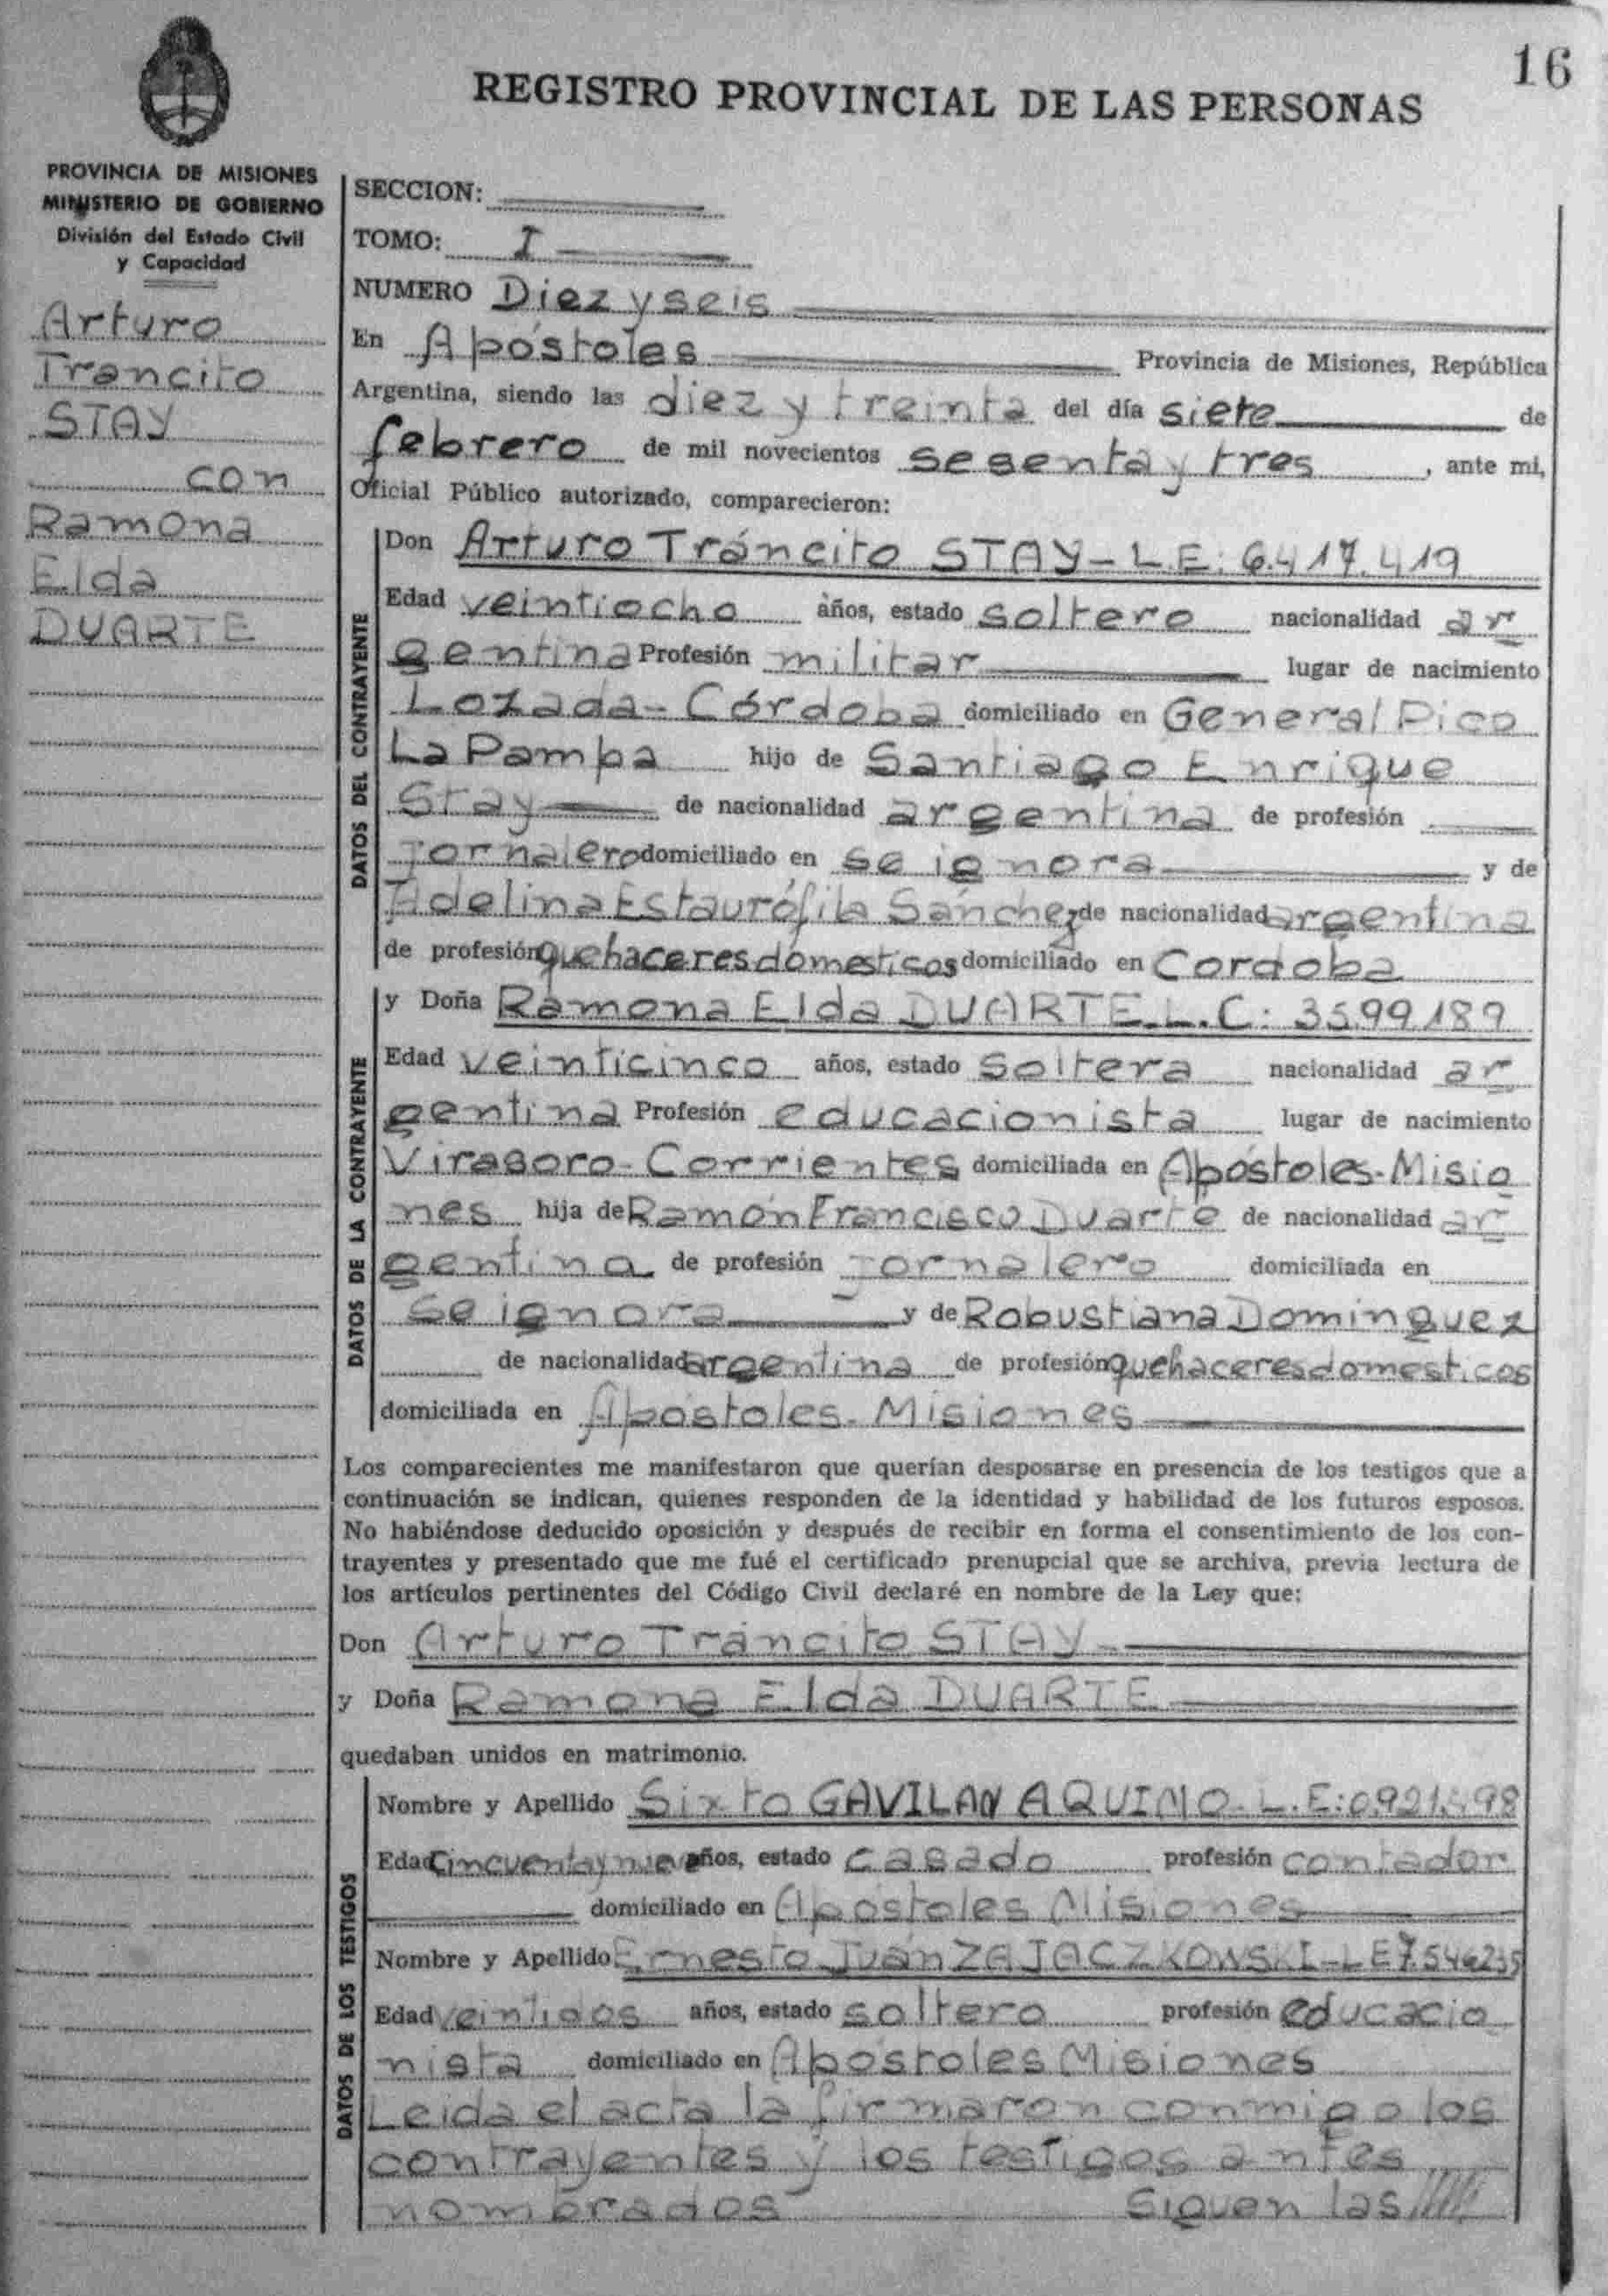 16
REGISTRO PROVINCIAL DE LAS PERSONAS
PROVINCIA DE MISIONES
MINISTERIO DE GOBIERNO
División del Estado Civil
y Capacidad
Arturo
Trancito
STAY
con
Ramona
Elda
DUARTE
SECCION:
TOMO: I
NUMERO Diez y seis
En Apóstoles Provincia de Misiones, República
Argentina, siendo las diez y treinta del día siete de
febrero de mil novecientos sesenta y tres, ante mi,
Oficial Público autorizado, comparecieron:
DATOS DEL CONTRAYENTE
Don Arturo Tráncito STAY - L.E: 6.417.419
Edad veintiocho años, estado soltero nacionalidad ar
gentina Profesión militar lugar de nacimiento
Lozada - Córdoba domiciliado en General Pico
La Pampa hijo de Santiago Enrique
Stay de nacionalidad argentina de profesión
jornalero domiciliado en se ignora y de
Adelina Estaurófila Sánchez de nacionalidad argentina
de profesión quehaceres domesticos domiciliado en Cordoba
DATOS DE LA CONTRAYENTE
y Doña Ramona Elda DUARTE. L.C: 3599189
Edad veinticinco años, estado soltera nacionalidad ar
gentina Profesión educacionista lugar de nacimiento
Virasoro - Corrientes domiciliada en Apóstoles - Misio
nes hija de Ramón Francisco Duarte de nacionalidad ar
gentina de profesión jornalero domiciliada en
se ignora y de Robustiana Dominguez
de nacionalidad argentina de profesión quehaceres domesticos
domiciliada en Apóstoles. Misiones
Los comparecientes me manifestaron que querían desposarse en presencia de los testigos que a
continuación se indican, quienes responden de la identidad y habilidad de los futuros esposos.
No habiéndose deducido oposición y después de recibir en forma el consentimiento de los con-
trayentes y presentado que me fué el certificado prenupcial que se archiva, previa lectura de
los artículos pertinentes del Código Civil declaré en nombre de la Ley que:
Don Arturo Tráncito STAY
y Doña Ramona Elda DUARTE
quedaban unidos en matrimonio.
DATOS DE LOS TESTIGOS
Nombre y Apellido Sixto GAVILAN AQUINO. L.E:
Edad Cincuenta y nueve años, estado casado profesión contador
domiciliado en Apóstoles Misiones
Nombre y Apellido Ernesto Juan ZAJACZKOWSKI - L E 7.546235
Edad veintidos años, estado soltero profesión educacio
nista domiciliado en Apóstoles Misiones
Leida el acta la firmaron conmigo los
contrayentes y los testigos antes
nombrados Siguen las /////